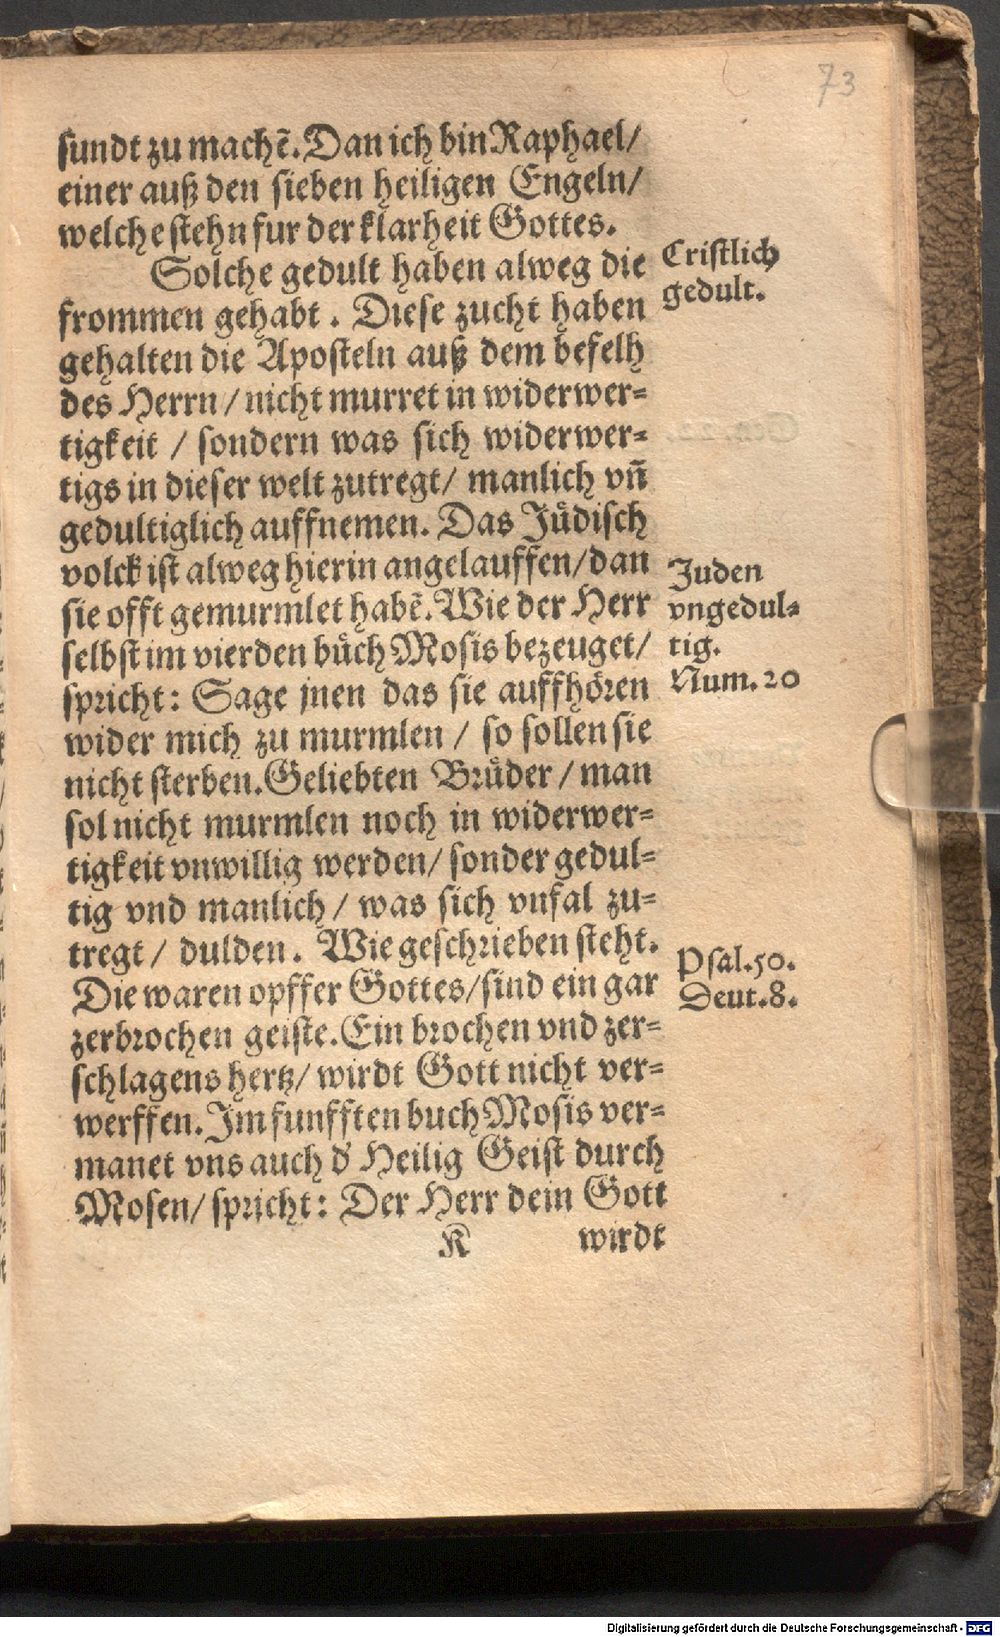 73
sundt zu machē. Dan ich bin Raphael/
einer auß den sieben heiligen Engeln/
welche stehn fur der klarheit Gottes.
Solche gedult haben alweg die
Cristlich
gedult.
frommen gehabt. Diese zucht haben
gehalten die Aposteln auß dem befelh
des Herrn/ nicht murret in widerwer-
tigkeit / sondern was sich widerwer-
tigs in dieser welt zutregt/ manlich vñ
gedultiglich auffnemen. Das Jüdisch
volck ist alweg hierin angelauffen/ dan
Juden
vngedul-
tig.
Num. 20
sie offt gemurmlet habē. Wie der Herr
selbst im vierden buͤch Mosis bezeuget/
spricht: Sage jnen das sie auffhoͤren
wider mich zu murmlen / so sollen sie
nicht sterben. Geliebten Bruͤder / man
sol nicht murmlen noch in widerwer-
tigkeit vnwillig werden/ sonder gedul-
tig vnd manlich/ was sich vnfal zu-
tregt/ dulden. Wie geschrieben steht.
Psal. 50.
Deut. 8.
Die waren opffer Gottes/ sind ein gar
zerbrochen geiste. Ein brochen vnd zer-
schlagens hertz/ wirdt Gott nicht ver-
werffen. Im funfften buch Mosis ver-
manet vns auch d' Heilig Geist durch
Mosen/ spricht: Der Herr dein Gott
K wirdt
Digitalisierung gefördert durch die Deutsche Forschungsgemeinschaft - DFG